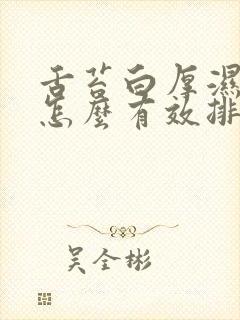 舌苔白厚濕
怎麼有效排
吴全彬